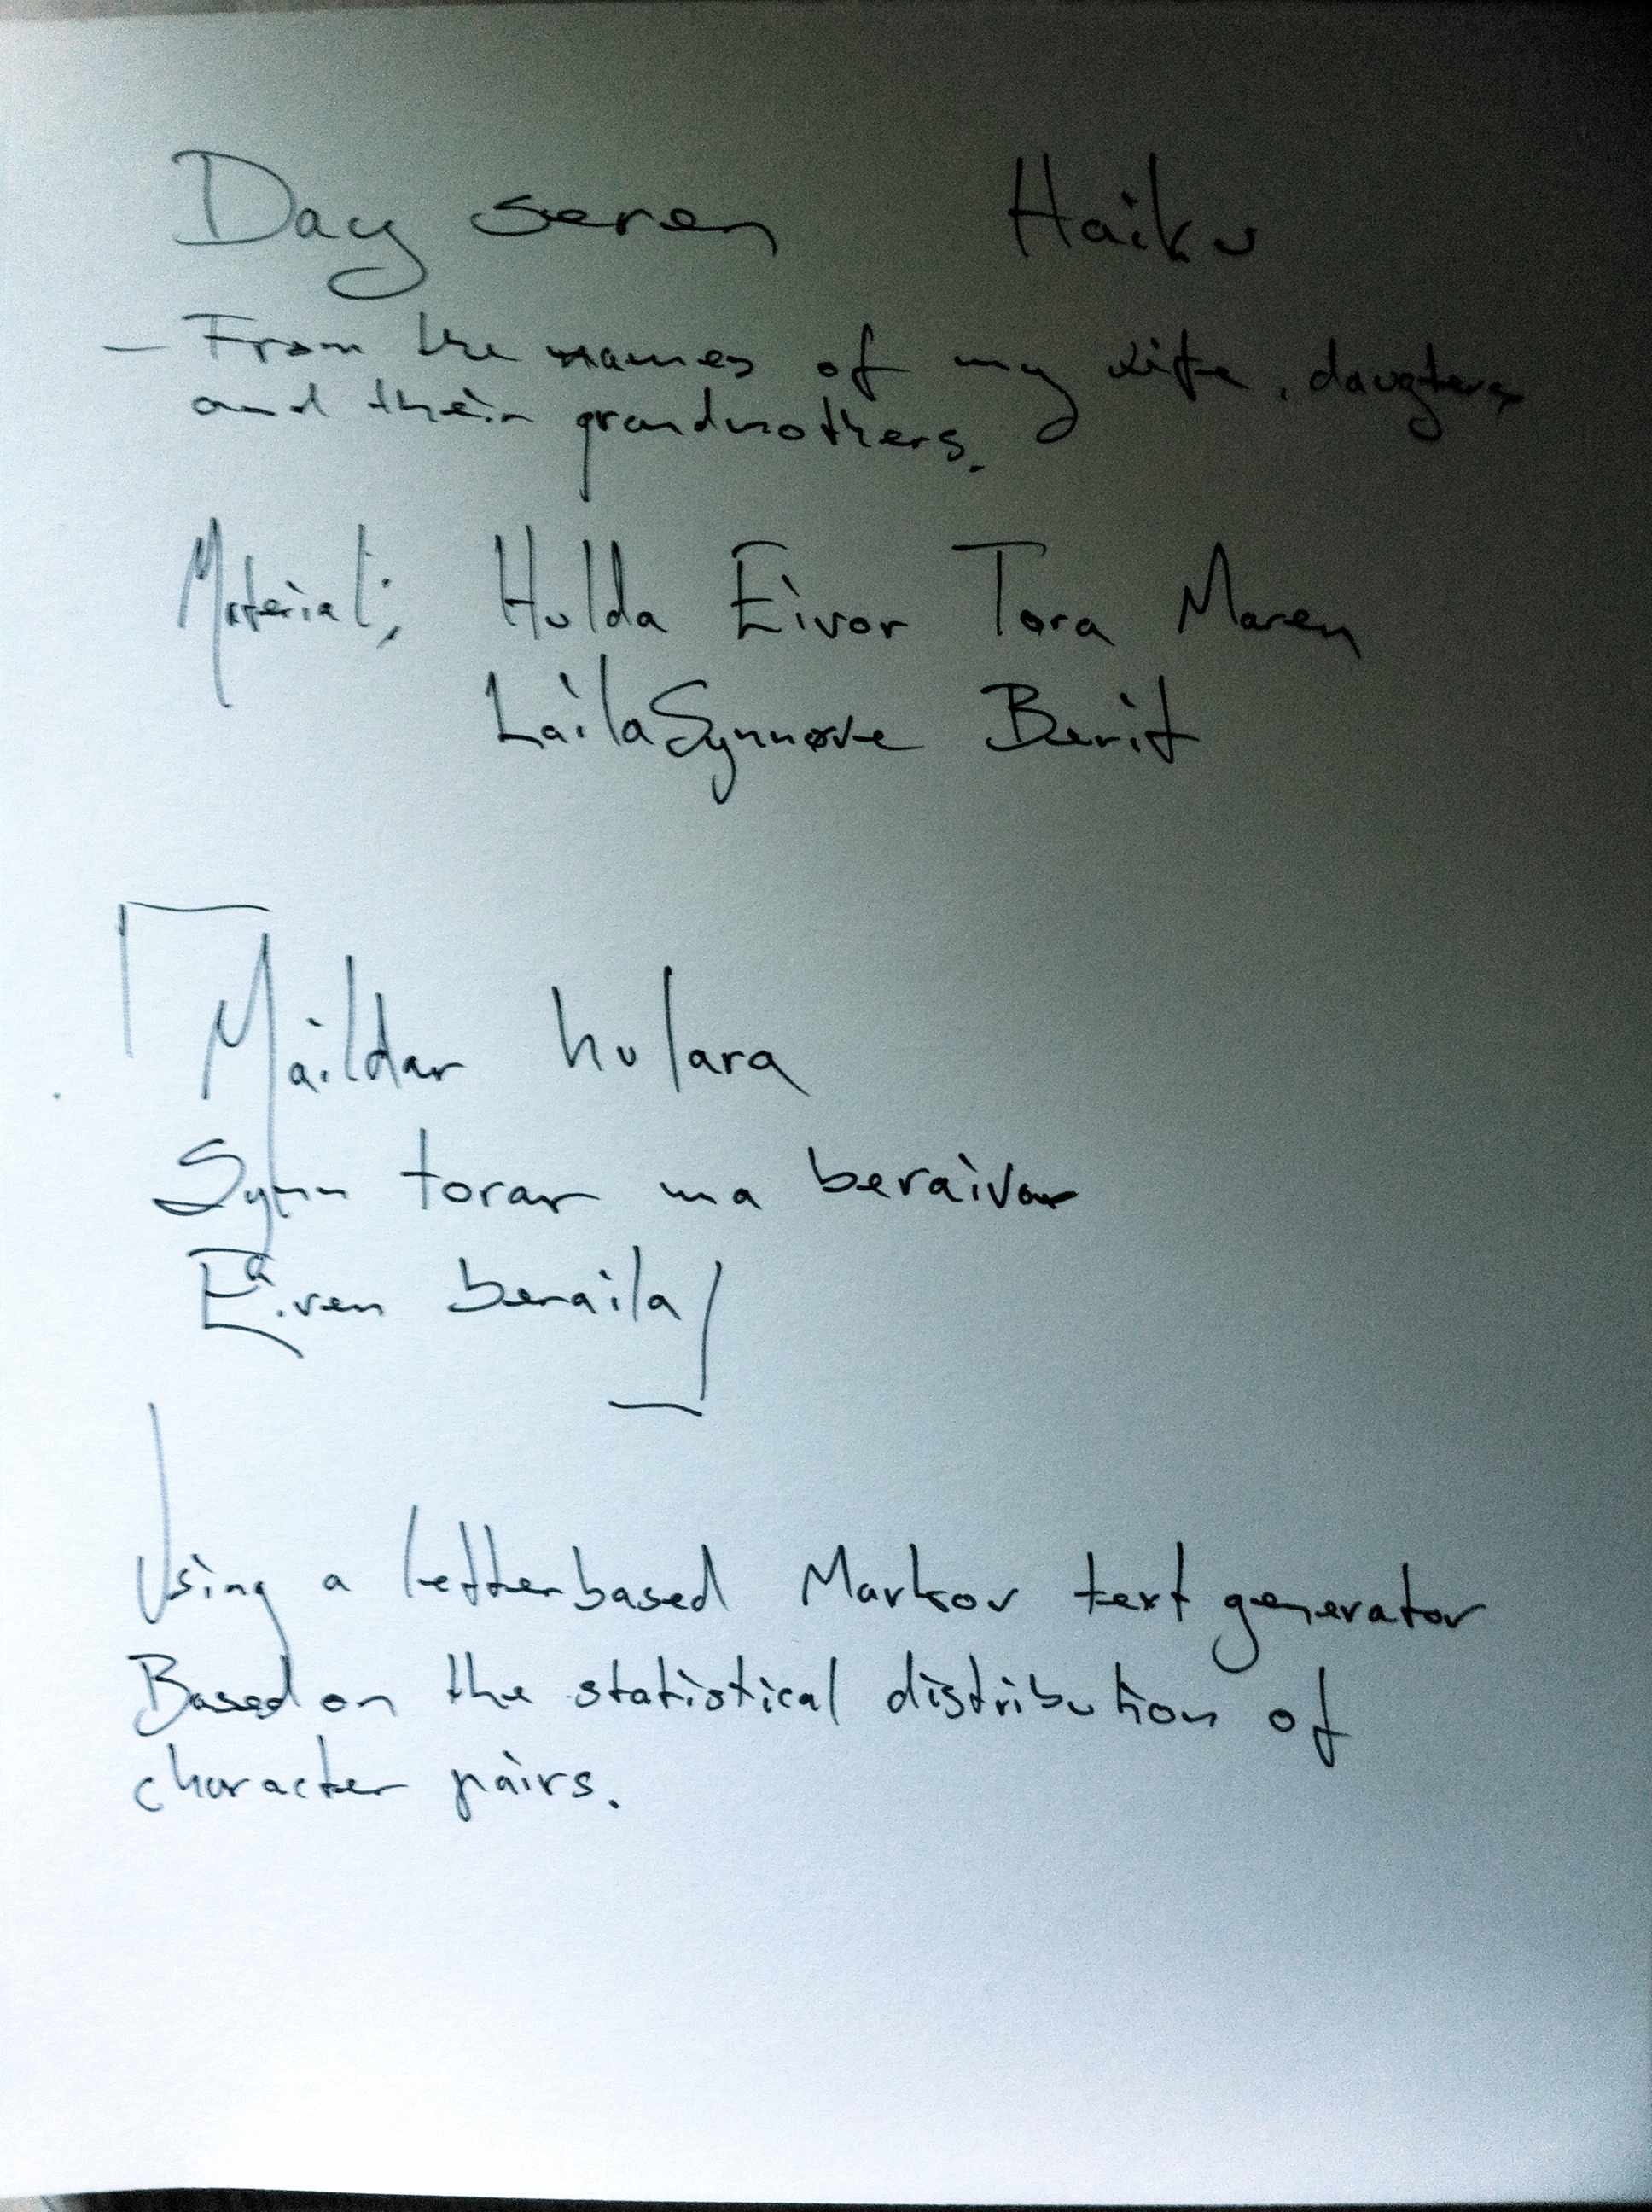 Day seven Haiku
— From the names of my wife, daugters
and their grandmothers.
Material: Hulda Eivor Tora Maren
Laila Synnøve Berit
Maildar hulara
Synn torar ma beraivar
Eiven beraila
Using a letterbased Markov text generator
Based on the statistical distribution of
character pairs.